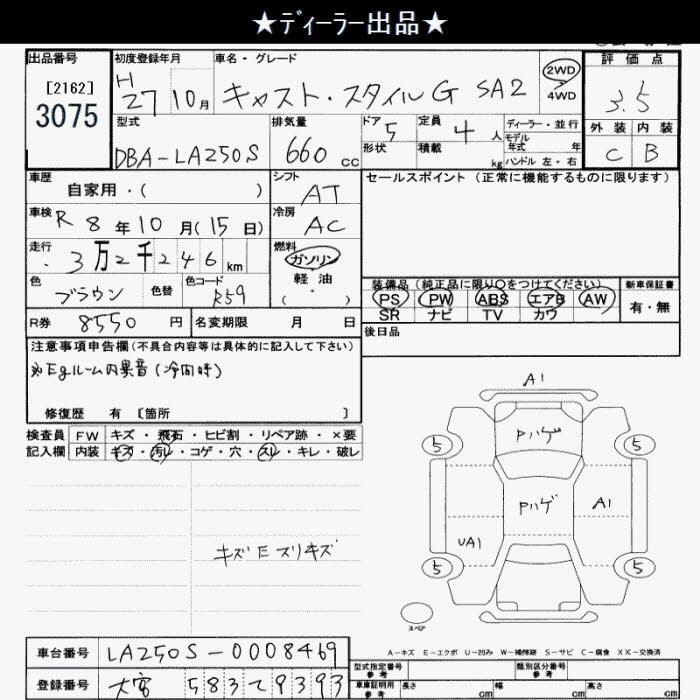 ★ディーラー出品★
出品番号 初度登録年月 車名・グレード 評価点
[2162] H 27年10月 キャスト・スタイルG SA2 2WD 3.5
3075 4WD
型式 排気量 ドア 5 定員 4人 ディーラー・並行 外装 内装
DBA-LA250S 660cc 形状 積載 kg モデル年式 年 C B
ハンドル 左・右
車歴 シフト セールスポイント(正常に機能するものに限ります)
自家用・( ) AT
車検 R8年10月(15日) 冷房 AC
走行 3万2千246km 燃料 ガソリン
軽油
・( )
色 ブラウン 色替 色コード R59
装備品(純正品に限り○をつけてください) 新車保証書
PS PW ABS エアB AW 有・無
SR ナビ TV カワ
R券 8550円 名変期限 月 日
後日品
注意事項申告欄(不具合内容等は具体的に記入して下さい)
※Egルーム内異音(冷間時)
修復歴 有 [箇所 ]
検査員 FW キズ・飛石・ヒビ割・リペア跡・×要
記入欄 内装 キズ・汚レ・コゲ・穴・スレ・キレ・破レ
キズ E スリキズ
A1
5 Pハゲ 5
Pハゲ A1
UA1
5 5
スペア
A-キズ E-エクボ U-凹み W-補修跡 S-サビ C-腐食 XX-交換済
車台番号 LA250S-0008469
型式指定番号 参考 類別区分番号 参考
登録番号 大宮 583 ウ 9393
車庫証明用 参考 長さ cm 幅 cm 高さ cm